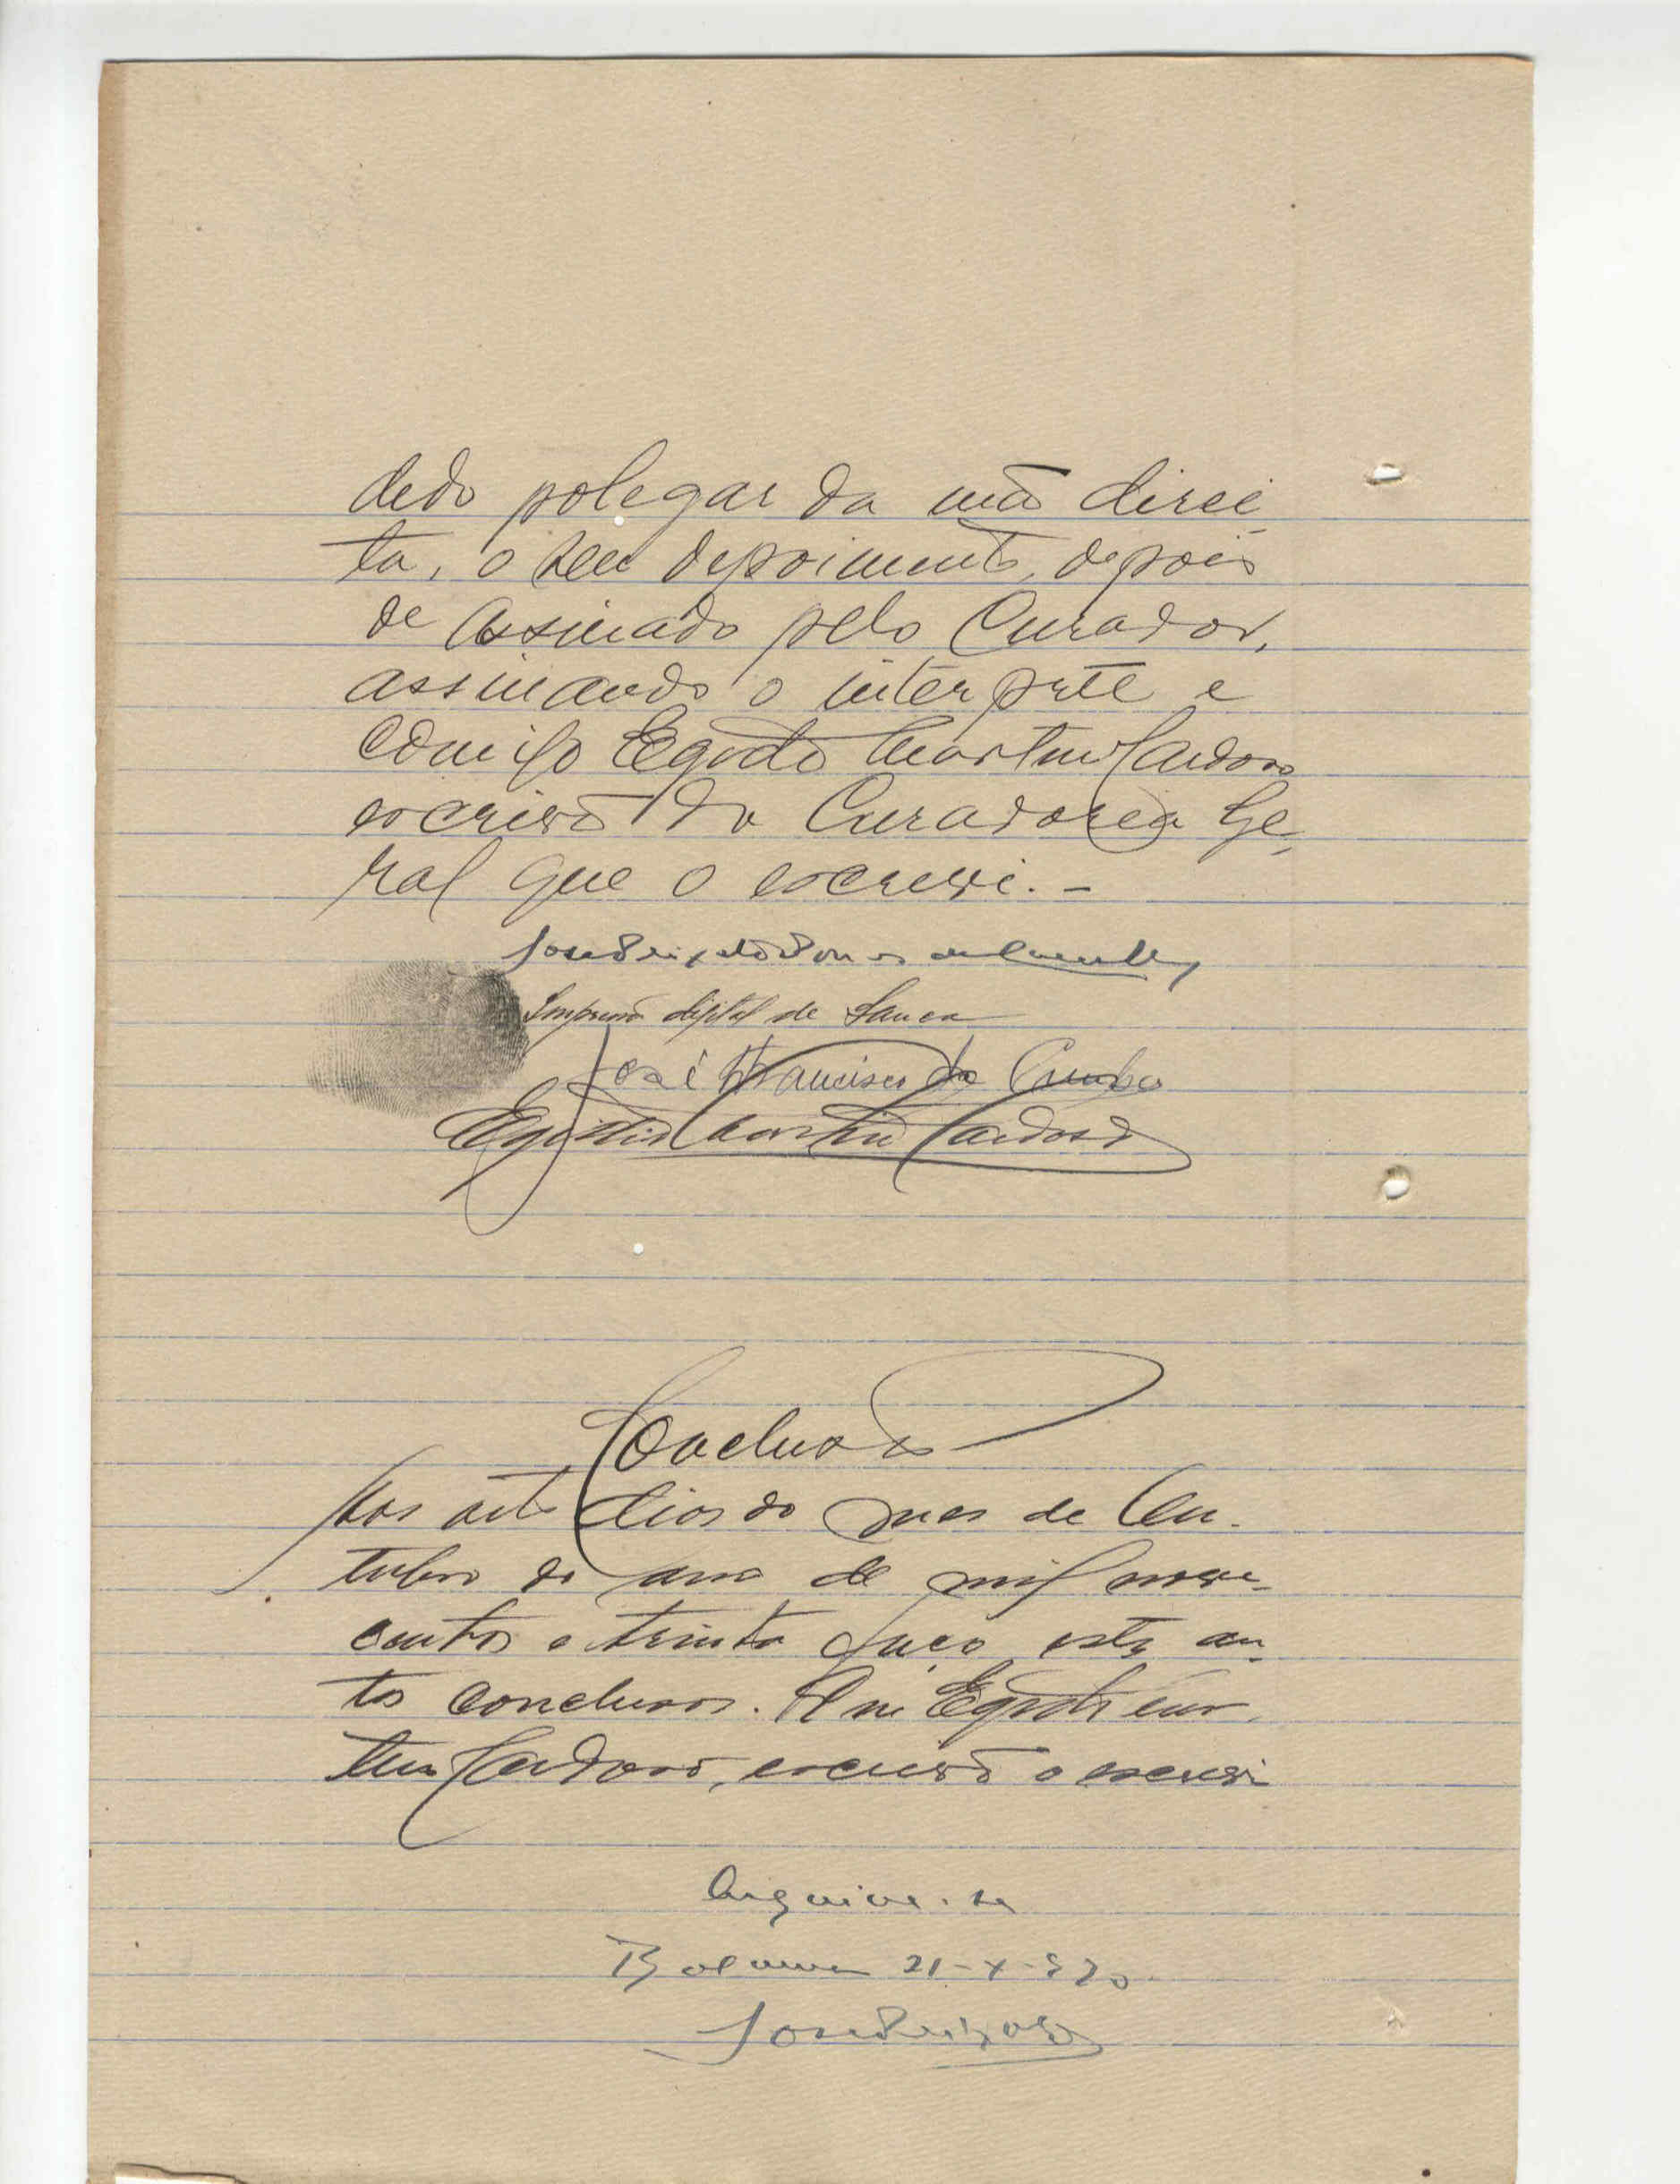 dedo polegar da mão direi
ta, o seu depoimento, depois
de assinado pelo Curador,
assinando o interprete e
comigo Egidio Martins Cardoso
escrivão da Curadoria Ge-
ral que o escrevi. -
José Peixoto
Impressão digital de Sanca
José Francisco da Cunha
Egidio Martins Cardoso
Conclusão
Aos oito dias do mes de Ou-
tubro do ano de mil nove-
centos e trinta faço estes au-
tos conclusos. E eu Egidio Mar
tins Cardoso, escrivão o escrevi
Arquive-se
Bolama 21-X-930
José Peixoto